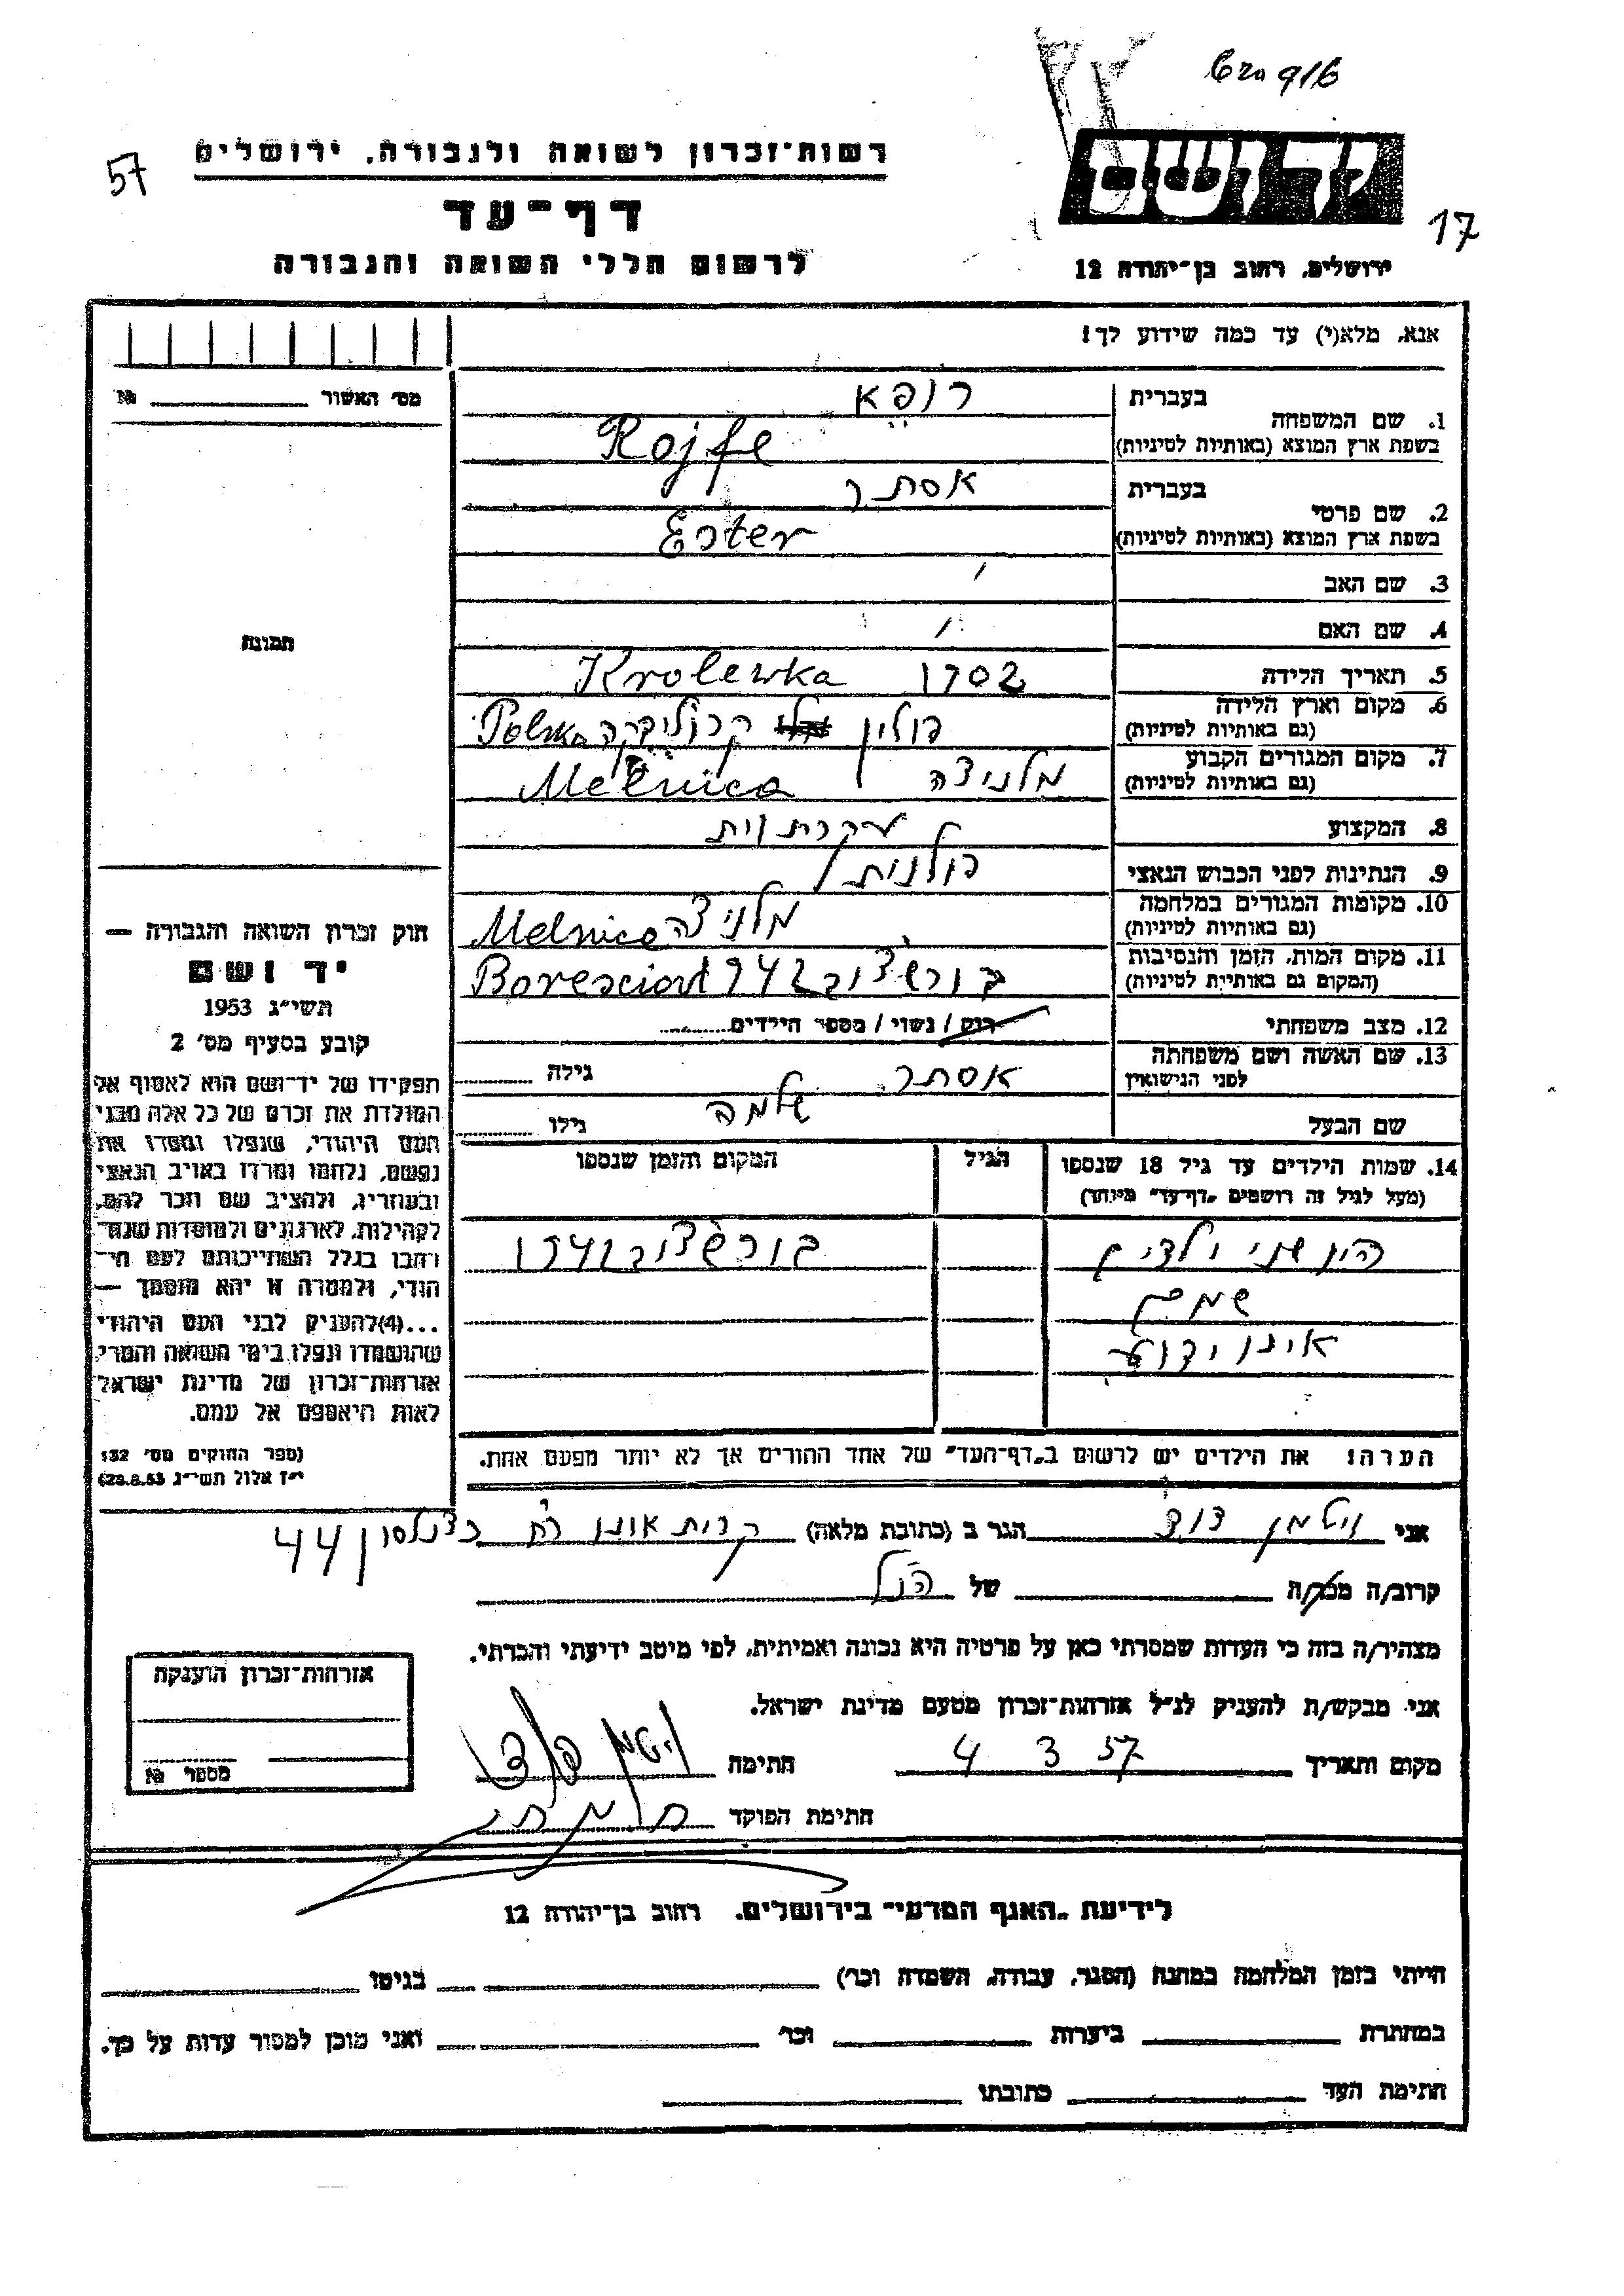 57
17
יד ושם
רשות־זכרון לשואה ולגבורה, ירושלים
דף־עד
לרשום חללי השואה והגבורה
ירושלים, רחוב בן־יהודה 12
אנא, מלא(י) עד כמה שידוע לך!
מס' האשור №
1. שם המשפחה
בעברית רופא
בשפת ארץ המוצא (באותיות לטיניות) Rojfe
2. שם פרטי
בעברית אסתר
בשפת ארץ המוצא (באותיות לטיניות) Ester
3. שם האב
4. שם האם
5. תאריך הלידה 1902 Krolewka
6. מקום וארץ הלידה
(גם באותיות לטיניות) פולין Polska
7. מקום המגורים הקבוע
(גם באותיות לטיניות) מלניצה Melnica
8. המקצוע עקרת בית
9. הנתינות לפני הכבוש הנאצי פולנית
10. מקומות המגורים במלחמה
(גם באותיות לטיניות) מלניצה Melnica
11. מקום המות, הזמן והנסיבות
(המקום גם באותיות לטיניות) בורשצוב 942
12. מצב משפחתי רוק / נשוי / מספר הילדים
13. שם האשה ושם משפחתה
לפני הנישואין אסתר גילה
שם הבעל שלמה גילו
14. שמות הילדים עד גיל 18 שנספו
(מעל לגיל זה רושמים „דף־עד" מיוחד)
הגיל
המקום והזמן שנספו
היו שני ילדים בורשצוב 1942
שמם
אינו ידוע
הערה! את הילדים יש לרשום ב„דף־העד" של אחד ההורים אך לא יותר מפעם אחת.
תמונה
חוק זכרון השואה והגבורה —
יד ושם
תשי"ג 1953
קובע בסעיף מס' 2
תפקידו של יד־ושם הוא לאסוף אל
המולדת את זכרם של כל אלה מבני
העם היהודי, שנפלו ומסרו את
נפשם, נלחמו ומרדו באויב הנאצי
ובעוזריו, ולהציב שם וזכר להם,
לקהילות, לארגונים ולמוסדות שנח־
רבו בגלל השתייכותם לעם הי־
הודי, ולמטרה זו יהא מוסמך —
...(4)להעניק לבני העם היהודי
שהושמדו ונפלו בימי השואה והמרי
אזרחות־זכרון של מדינת ישראל
לאות היאספם אל עמם.
(ספר החוקים מס' 132
י"ז אלול תשי"ג 28.8.53)
אני ויטמן דוד הגר ב (כתובת מלאה) קרית אונו רח' כצנלסון 44
קרוב/ה מכר/ה של הנ"ל
מצהיר/ה בזה כי העדות שמסרתי כאן על פרטיה היא נכונה ואמיתית, לפי מיטב ידיעתי והכרתי.
אני מבקש/ת להעניק לנ"ל אזרחות־זכרון מטעם מדינת ישראל.
מקום ותאריך 4 3 57 חתימה ויטמן דוד
חתימת הפוקד
אזרחות־זכרון הוענקה
מספר №
לידיעת „האגף המדעי" בירושלים. רחוב בן־יהודה 12
הייתי בזמן המלחמה במחנה (הסגר, עבודה, השמדה וכו') בגיטו
במחתרת ביערות וכו' ואני מוכן למסור עדות על כך.
חתימת העד כתובתו